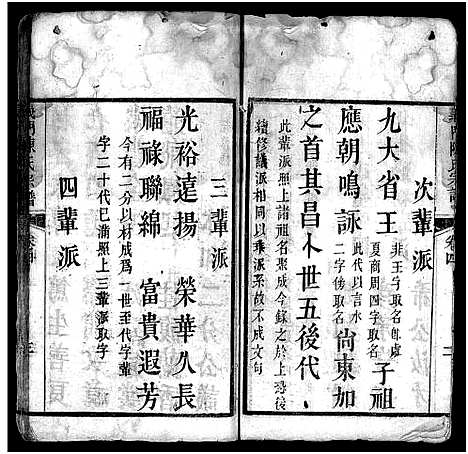 次輩派
九大省王
非王字取名即虛
夏商周四字取名
子祖
應朝鳴詠
此代以言水
二字後取名
尚東加
之首其昌卜世五後代
此輩派照上諸祖名聚成今錄之於於上恐後
續修議派相同以乘派系故不成文句
三輩派
光裕遠揚 榮華久長
福祿聯綿 富貴遐芳
今有二分以材成爲一世至代字輩
字二十代已滿照上三輩派取字
四輩派
義門陳氏宗譜
卷四
三